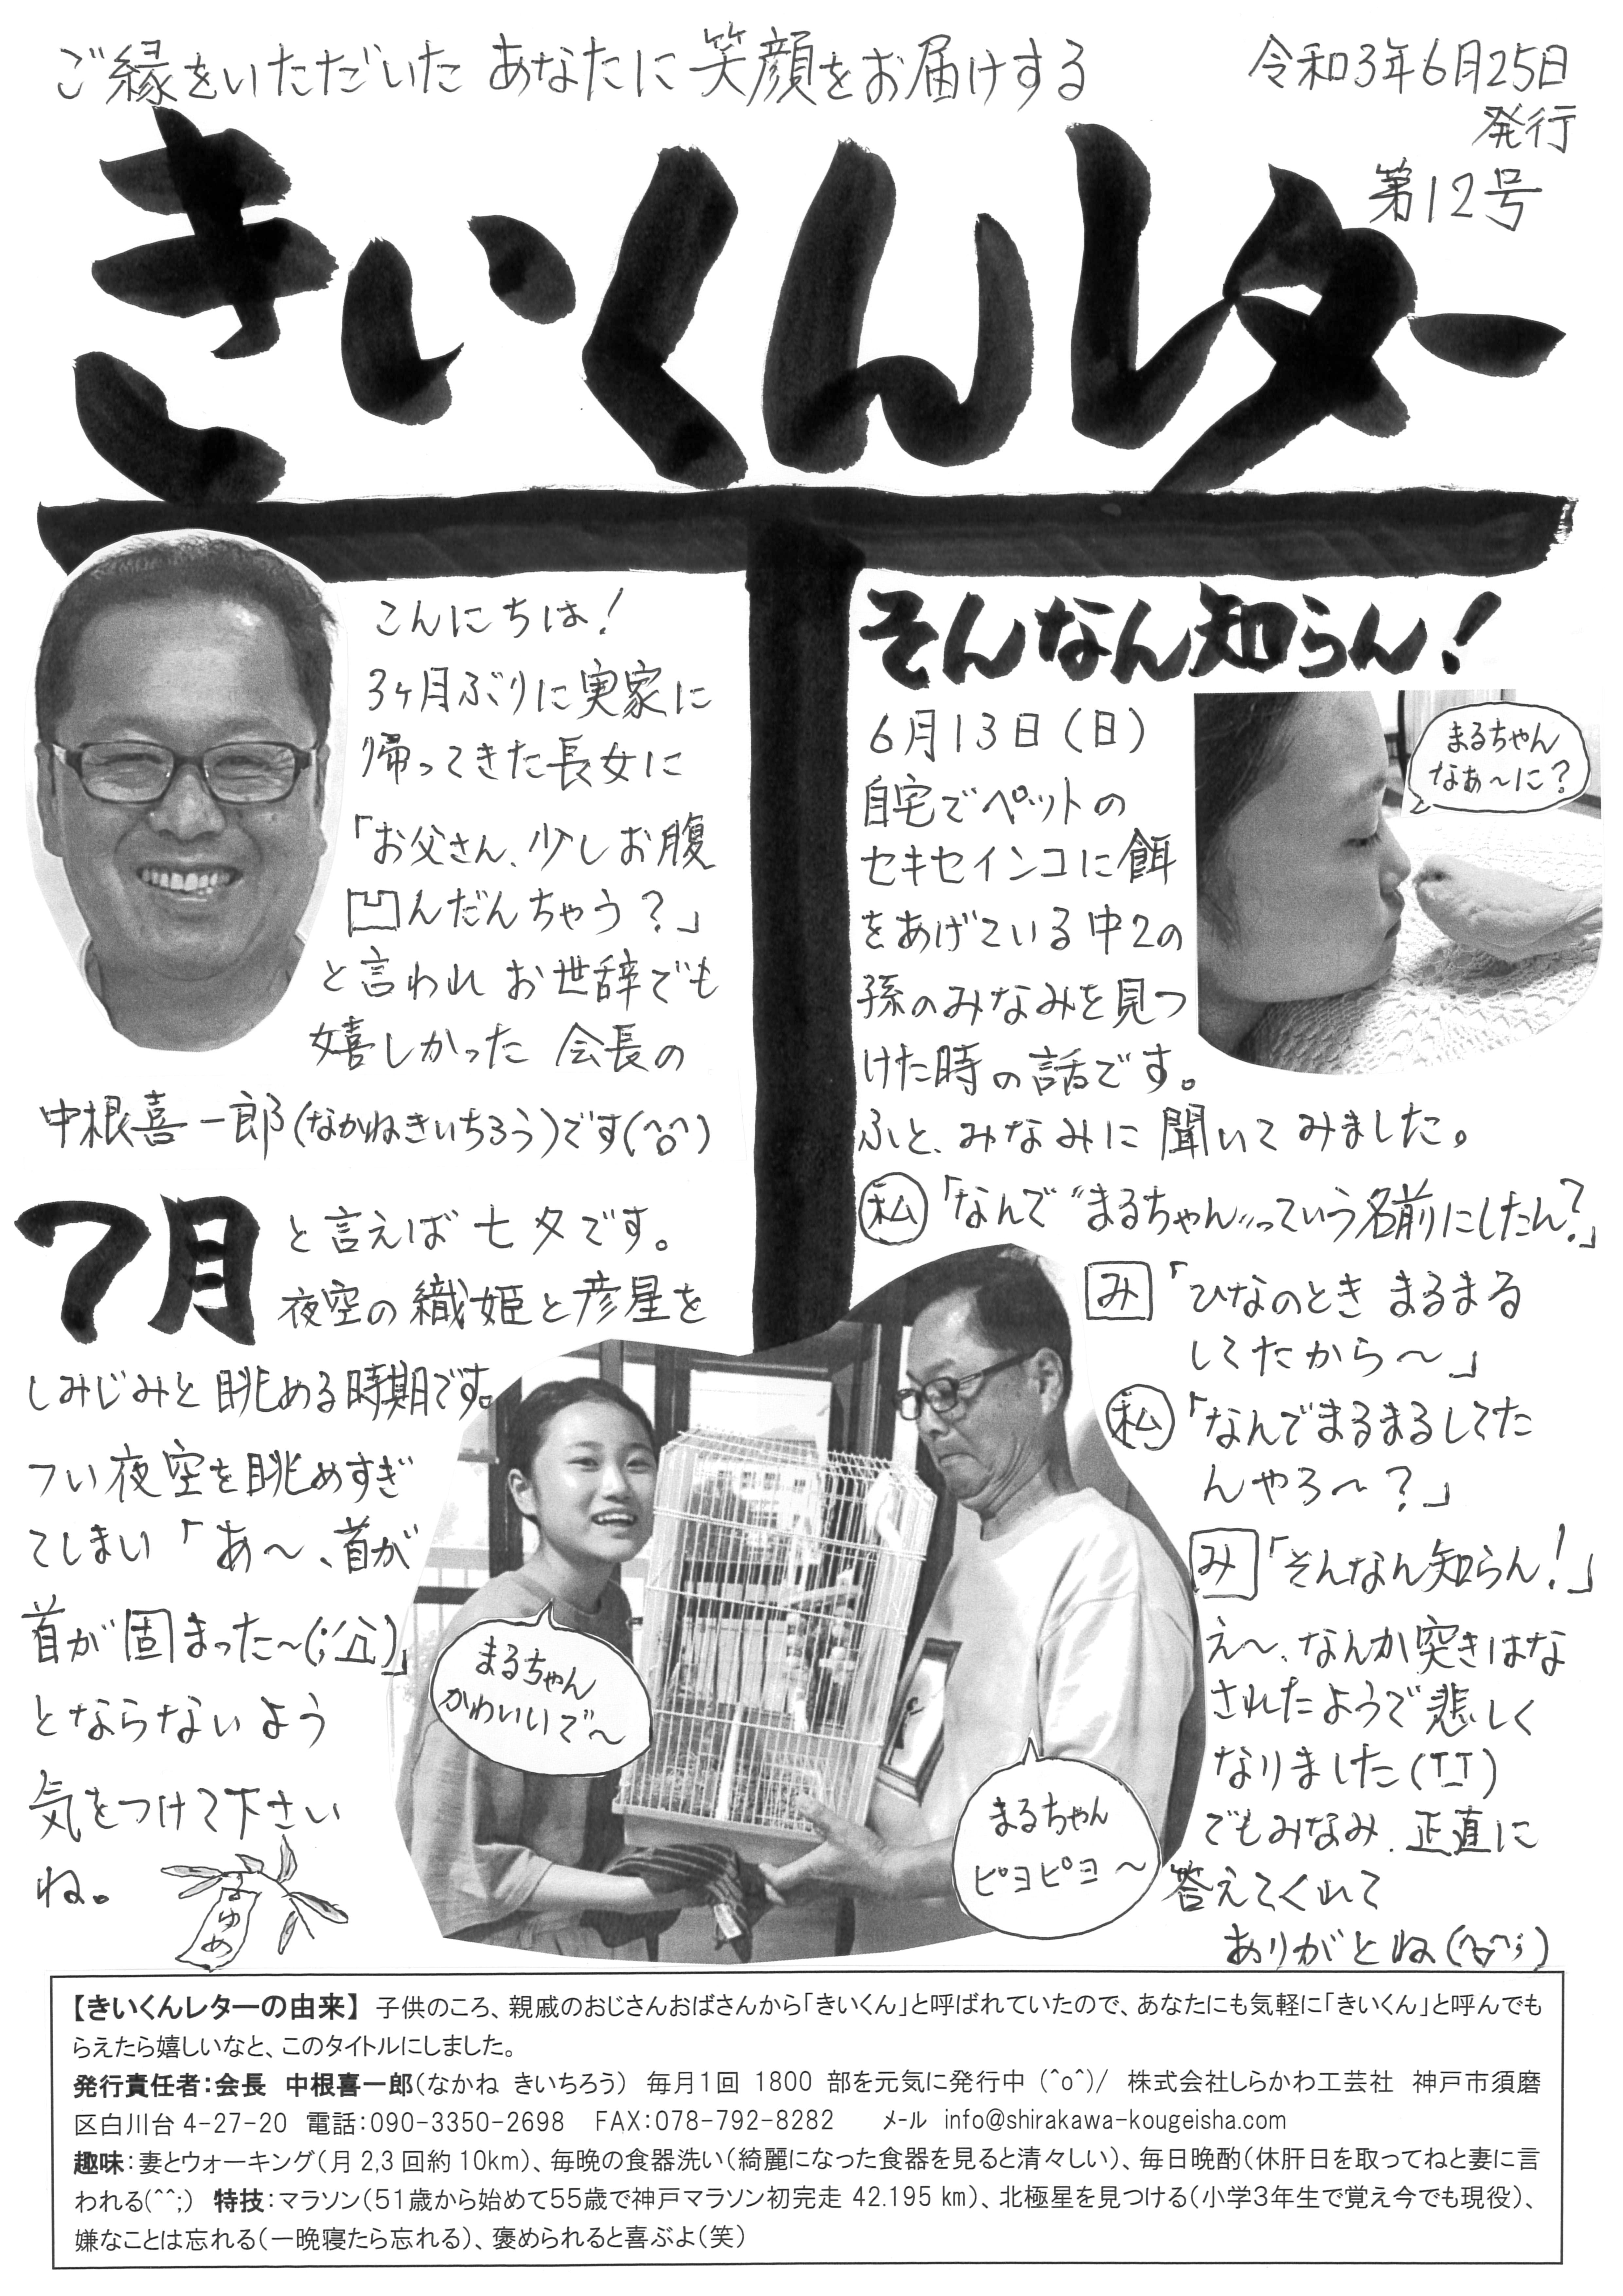 ご縁をいただいた あなたに 笑顔をお届けする
令和3年6月25日
発行
第12号
きいくんレター
こんにちは!
3ヶ月ぶりに実家に
帰ってきた長女に
「お父さん、少しお腹
凹んだんちゃう?」
と言われ お世辞でも
嬉しかった 会長の
中根喜一郎(なかねきいちろう)です(^o^)
7月 と言えば 七夕です。
夜空の 織姫と彦星を
しみじみと 眺める時期です。
つい夜空を眺めすぎ
てしまい 「あ〜、首が
首が固まった〜(;´д`)」
とならないよう
気をつけて下さい
ね。
なゆめ
そんなん知らん!
6月13日(日)
自宅でペットの
セキセインコに餌
をあげている中2の
孫のみなみを見つ
けた時の話です。
ふと、みなみに 聞いてみました。
まるちゃん
なぁ〜に?
私「なんで“まるちゃん”っていう名前にしたん?」
み「ひなのとき まるまる
してたから〜」
私「なんでまるまるしてた
んやろ〜?」
み「そんなん知らん!」
え〜、なんか突きはな
されたようで悲しく
なりました(TT)
でもみなみ、正直に
答えてくれて
ありがとね(^o^;)
まるちゃん
かわいいで〜
まるちゃん
ピヨピヨ〜
【きいくんレターの由来】 子供のころ、親戚のおじさんおばさんから「きいくん」と呼ばれていたので、あなたにも気軽に「きいくん」と呼んでも
らえたら嬉しいなと、このタイトルにしました。
発行責任者:会長 中根喜一郎(なかね きいちろう) 毎月1回 1800 部を元気に発行中 (^o^)/ 株式会社しらかわ工芸社 神戸市須磨
区白川台 4-27-20 電話:090-3350-2698 FAX:078-792-8282 ﾒｰﾙ info@shirakawa-kougeisha.com
趣味:妻とウォーキング(月 2,3 回約 10km)、毎晩の食器洗い(綺麗になった食器を見ると清々しい)、毎日晩酌(休肝日を取ってねと妻に言
われる(^^;) 特技:マラソン(51歳から始めて55歳で神戸マラソン初完走 42.195 km)、北極星を見つける(小学3年生で覚え今でも現役)、
嫌なことは忘れる(一晩寝たら忘れる)、褒められると喜ぶよ(笑)